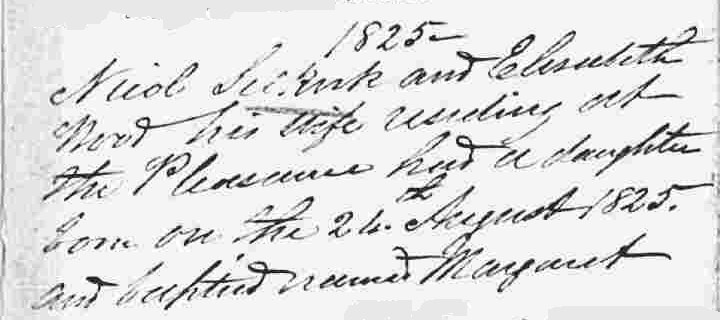 1825
Nicol Selkirk and Elisabeth
Wood his wife residing at
the Pleasance had a daughter
born on the 24th August 1825.
and baptized named Margaret